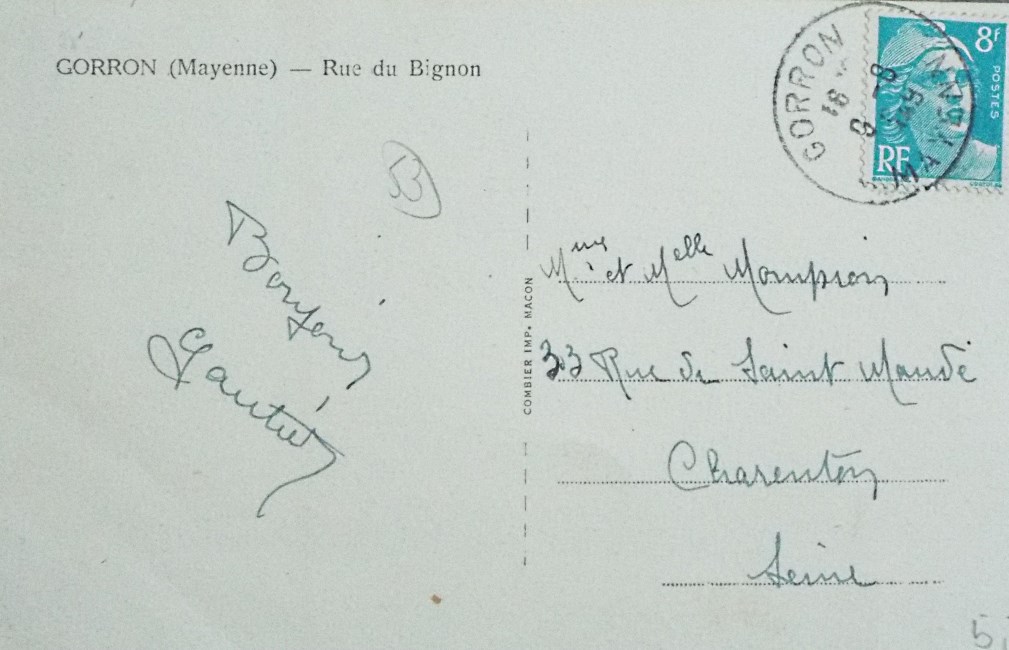 GORRON (Mayenne) — Rue du Bignon
53
Bonjour
Gautier
COMBIER IMP. MACON
GORRON
MAYENNE
8f
POSTES
RF
Mme et Melle Mompion
33 Rue de Saint Mandé
Charenton
Seine